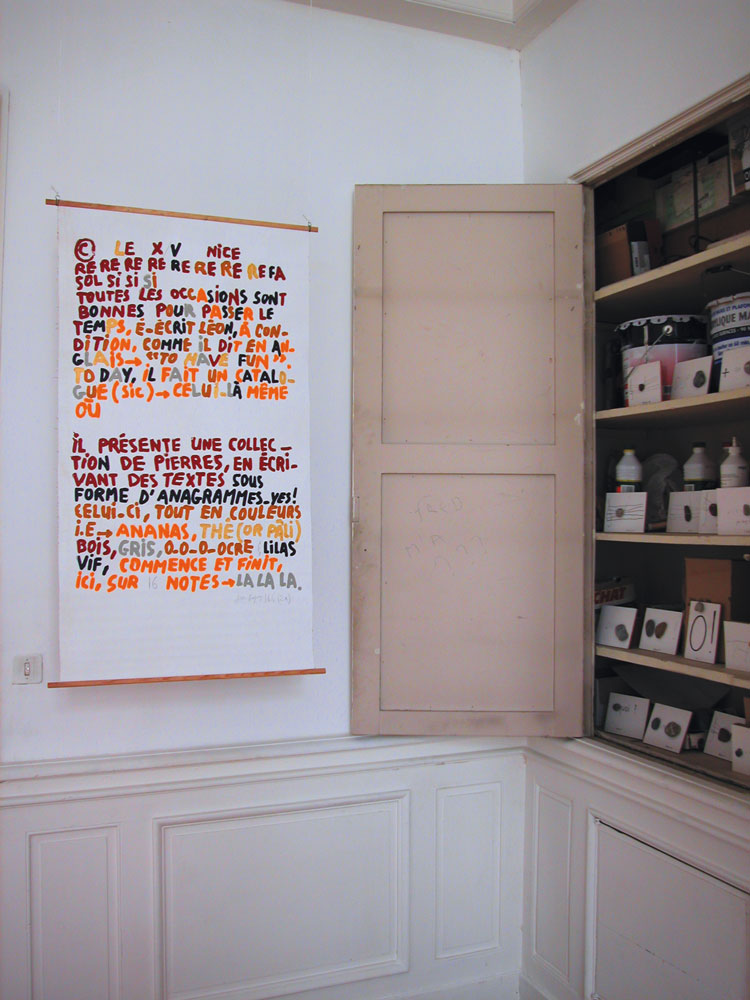 © LE X V NICE
RE RE RE RE RE RE RE RE REFA
SOL SI SI SI
TOUTES LES OCCASIONS SONT
BONNES POUR PASSER LE
TEMPS, É-ÉCRIT LÉON, À CON-
DITION, COMME IL DIT EN AN-
GLAIS→ "TO HAVE FUN".
TO DAY, IL FAIT UN CATALO-
GUE (SIC)→ CELUI-LÀ MÊME
OÙ
IL PRÉSENTE UNE COLLEC-
TION DE PIERRES, EN ÉCRI-
VANT DES TEXTES SOUS
FORME D'ANAGRAMMES-YES!
CELUI-CI, TOUT EN COULEURS
I.E→ ANANAS, THÉ (OR PÂLI)
BOIS, GRIS, O-O-O-OCRE LILAS
VIF, COMMENCE ET FINIT,
ICI, SUR 16 NOTES→LA LA LA.
FRED
CHAT
O!